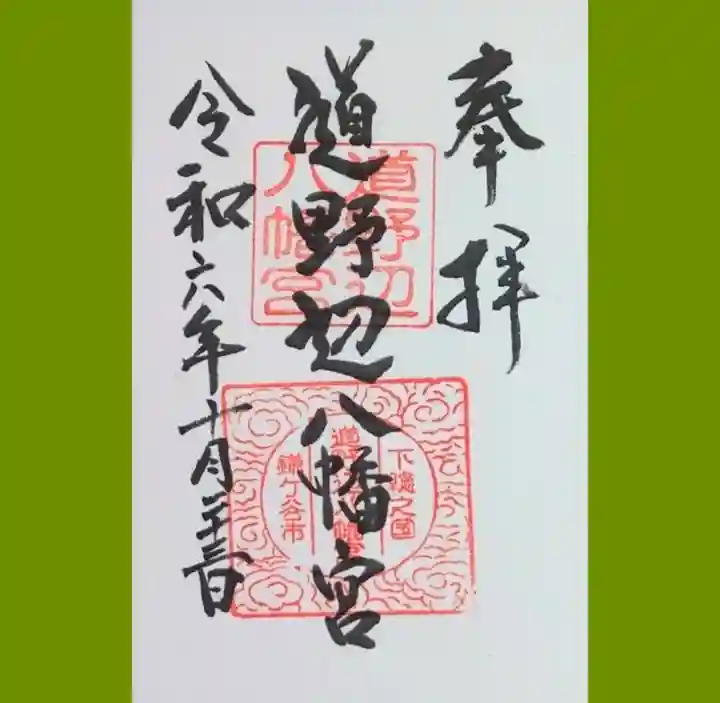 奉拝
道野辺八幡宮
令和六年十月二十三日
道野辺
八幡宮
下総之国
道野辺八幡宮
鎌ケ谷市